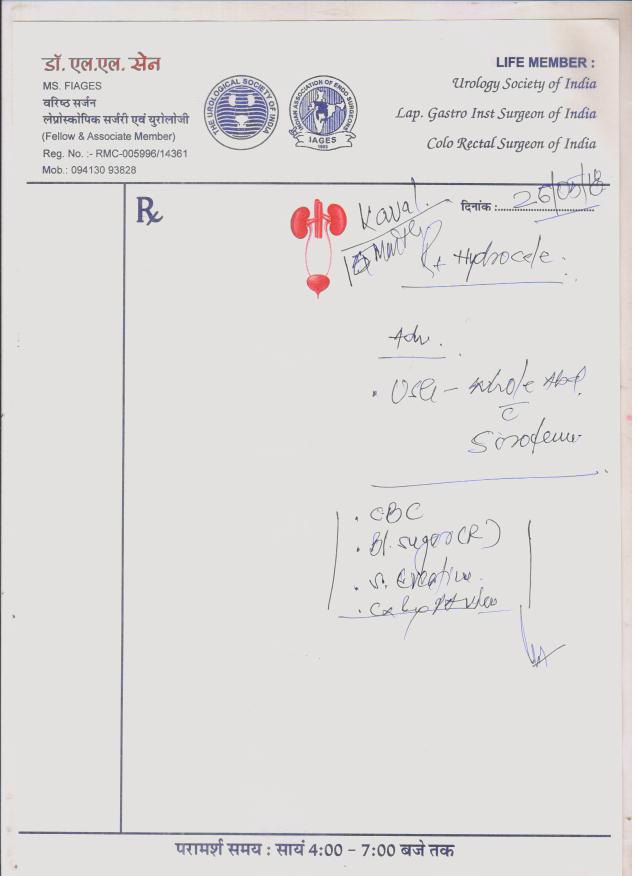 डॉ. एल.एल. सेन
MS. FIAGES
वरिष्ठ सर्जन
लेप्रोस्कोपिक सर्जरी एवं युरोलोजी
(Fellow & Associate Member)
Reg. No. :- RMC-005996/14361
Mob.: 094130 93828
THE UROLOGICAL SOCIETY OF INDIA
INDIAN ASSOCIATION OF ENDO SURGEONS
IAGES
1993
LIFE MEMBER :
Urology Society of India
Lap. Gastro Inst Surgeon of India
Colo Rectal Surgeon of India
Rx
दिनांक :
Hydrocele.
Adv.
. USG - Whole Abd.
c
. CBC
. Bl. sugar (R)
. S. Creatine.
परामर्श समय : सायं 4:00 - 7:00 बजे तक